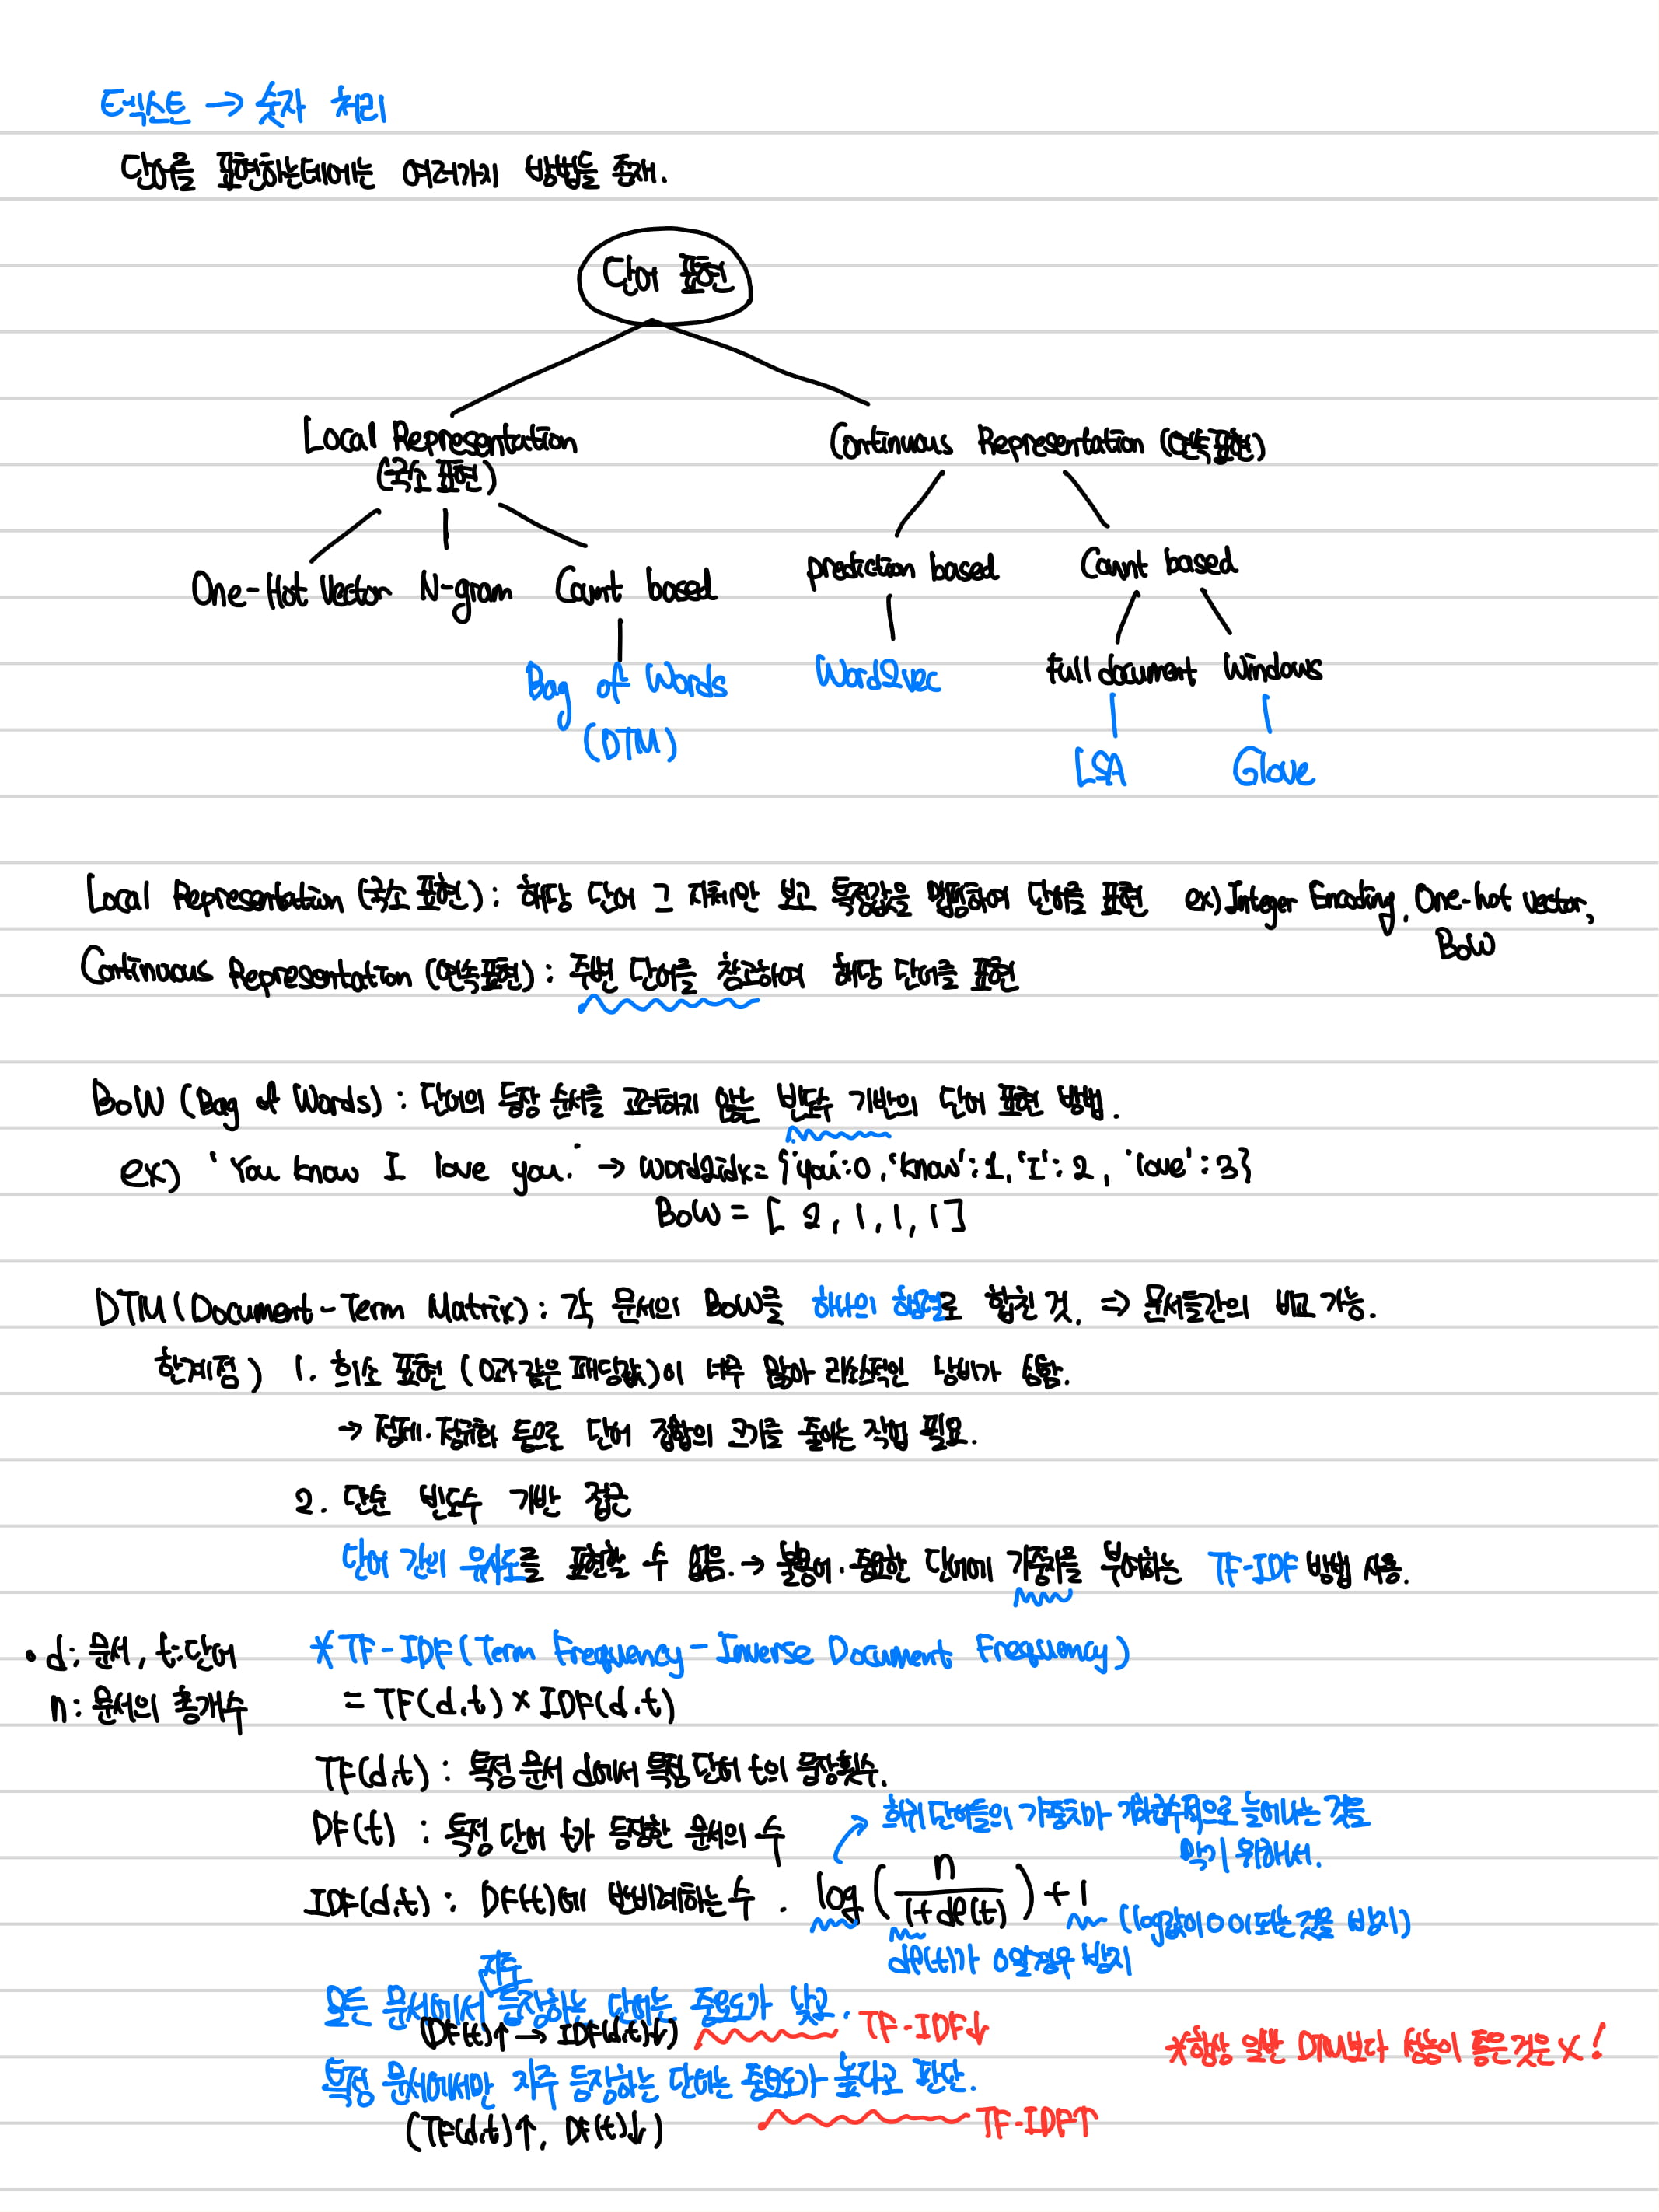 텍스트 → 숫자 처리
단어를 표현하는데에는 여러가지 방법들 존재.
단어 표현
Local Representation
(국소 표현)
Continuous Representation (연속표현)
One-Hot Vector N-gram Count based
prediction based Count based
Bag of Words
(DTM)
Word2vec
Full document Windows
LSA Glove
Local Representation (국소 표현) : 해당 단어 그 자체만 보고 특정값을 맵핑하여 단어를 표현 ex) Integer Encoding, One-hot vector,
BoW
Continuous Representation (연속표현) : 주변 단어를 참고하여 해당 단어를 표현
BoW (Bag of Words) : 단어의 등장 순서를 고려하지 않는 빈도수 기반의 단어 표현 방법.
ex) 'You know I love you.' → word2idx = {'you':0, 'know':1, 'I':2, 'love':3}
BoW = [2, 1, 1, 1]
DTM (Document-Term Matrix) : 각 문서의 BoW를 하나의 행렬로 합친 것. ⇒ 문서들간의 비교 가능.
한계점) 1. 희소 표현 (0과 같은 패딩값)이 너무 많아 리소스적인 낭비가 심함.
→ 정제·정규화 등으로 단어 집합의 크기를 줄이는 작업 필요.
2. 단순 빈도수 기반 접근
단어 간의 유사도를 표현할 수 없음. → 불용어·중요한 단어에 가중치를 부여하는 TF-IDF 방법 사용.
• d: 문서, t: 단어
n: 문서의 총개수
* TF-IDF (Term Frequency - Inverse Document Frequency)
= TF(d,t) × IDF(d,t)
TF(d,t) : 특정 문서 d에서 특정 단어 t의 등장횟수.
DF(t) : 특정 단어 t가 등장한 문서의 수
희귀 단어들의 가중치가 기하급수적으로 늘어나는 것을
막기 위해서.
IDF(d,t) : DF(t)에 반비례하는 수. log(n/(1+df(t)))+1
(log값이 0이 되는 것을 방지)
df(t)가 0일 경우 방지
자주
모든 문서에서 등장하는 단어는 중요도가 낮고, TF-IDF↓
(DF(t)↑ → IDF(d,t)↓)
*항상 일반 DTM보다 성능이 좋은 것은 X!
특정 문서에서만 자주 등장하는 단어는 중요도가 높다고 판단.
(TF(d,t)↑, DF(t)↓) TF-IDF↑